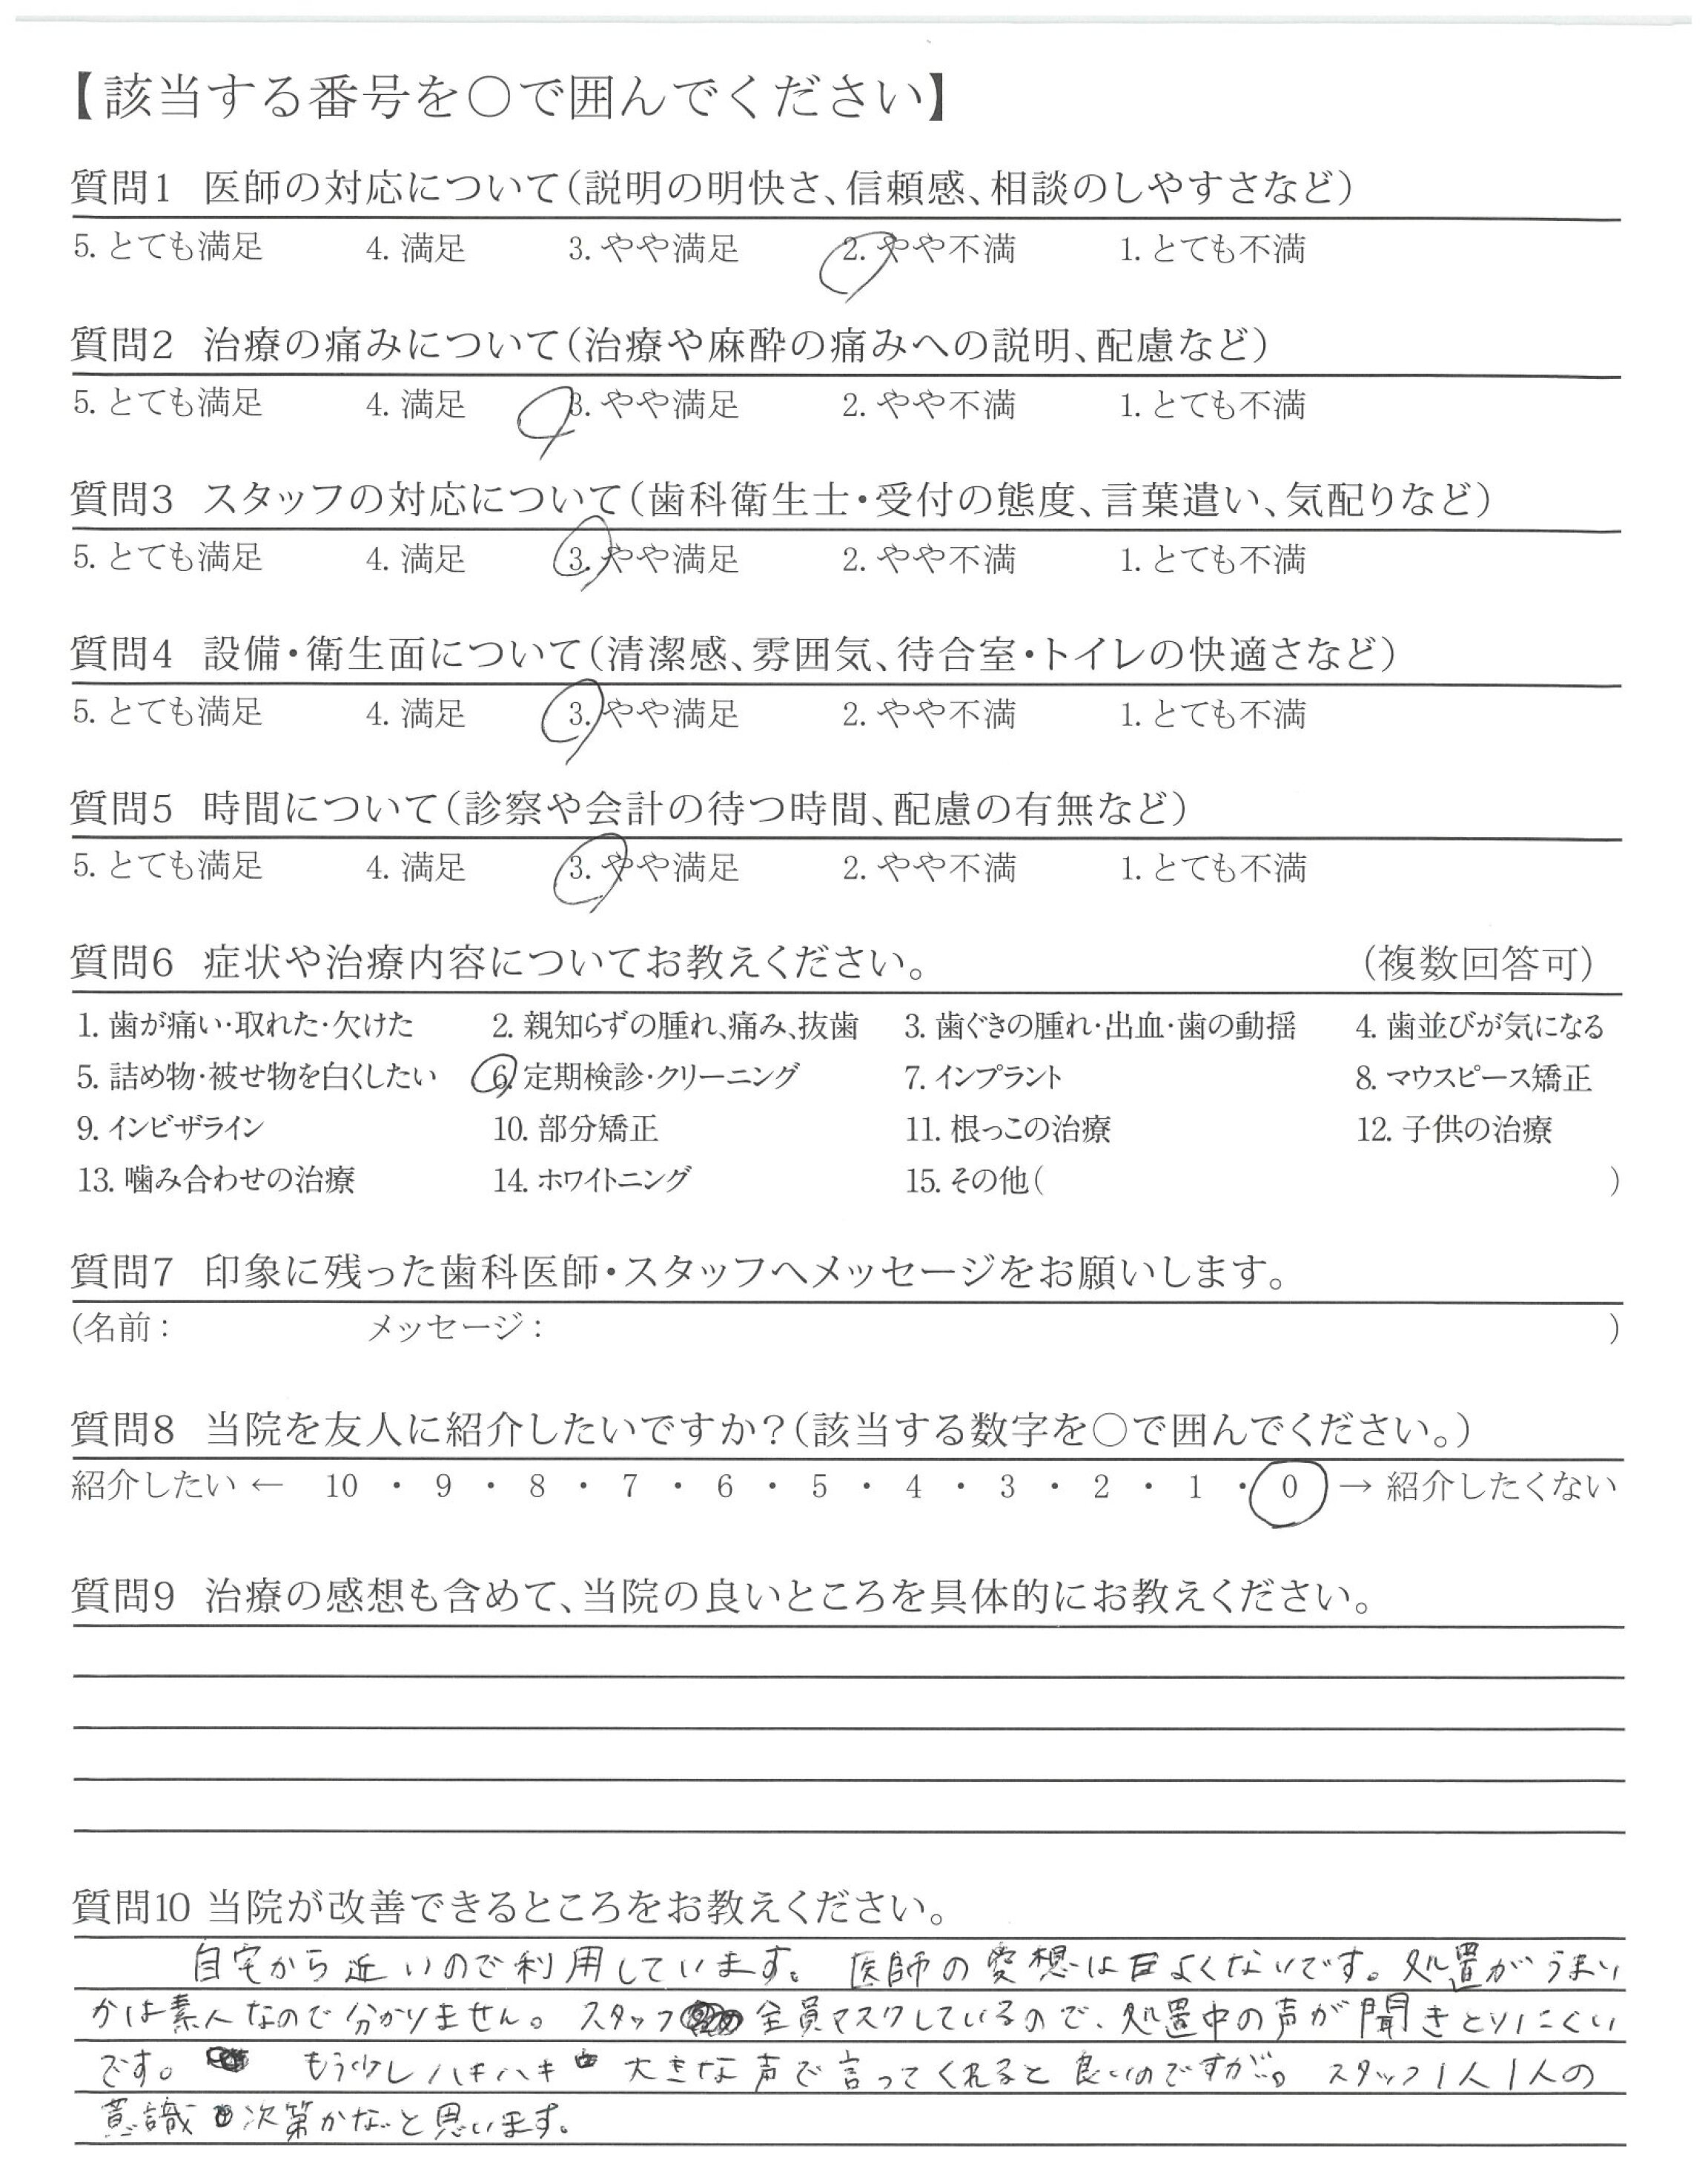 【該当する番号を○で囲んでください】
質問1 医師の対応について(説明の明快さ、信頼感、相談のしやすさなど)
5. とても満足 4. 満足 3. やや満足 2. やや不満 1. とても不満
質問2 治療の痛みについて(治療や麻酔の痛みへの説明、配慮など)
5. とても満足 4. 満足 3. やや満足 2. やや不満 1. とても不満
質問3 スタッフの対応について(歯科衛生士・受付の態度、言葉遣い、気配りなど)
5. とても満足 4. 満足 3. やや満足 2. やや不満 1. とても不満
質問4 設備・衛生面について(清潔感、雰囲気、待合室・トイレの快適さなど)
5. とても満足 4. 満足 3. やや満足 2. やや不満 1. とても不満
質問5 時間について(診察や会計の待つ時間、配慮の有無など)
5. とても満足 4. 満足 3. やや満足 2. やや不満 1. とても不満
質問6 症状や治療内容についてお教えください。 (複数回答可)
1. 歯が痛い・取れた・欠けた 2. 親知らずの腫れ、痛み、抜歯 3. 歯ぐきの腫れ・出血・歯の動揺 4. 歯並びが気になる
5. 詰め物・被せ物を白くしたい 6. 定期検診・クリーニング 7. インプラント 8. マウスピース矯正
9. インビザライン 10. 部分矯正 11. 根っこの治療 12. 子供の治療
13. 噛み合わせの治療 14. ホワイトニング 15. その他( )
質問7 印象に残った歯科医師・スタッフへメッセージをお願いします。
(名前: メッセージ: )
質問8 当院を友人に紹介したいですか?(該当する数字を○で囲んでください。)
紹介したい ← 10 ・ 9 ・ 8 ・ 7 ・ 6 ・ 5 ・ 4 ・ 3 ・ 2 ・ 1 ・ 0 → 紹介したくない
質問9 治療の感想も含めて、当院の良いところを具体的にお教えください。
質問10 当院が改善できるところをお教えください。
自宅から近いので利用しています。 医師の愛想は よくないです。処置がうまい
かは素人なので分かりません。 スタッフ 全員マスクしているので、処置中の声が聞きとりにくい
です。 もう少しハキハキ 大きな声で言ってくれると良いのですが。 スタッフ1人1人の
意識 次第かなと思います。